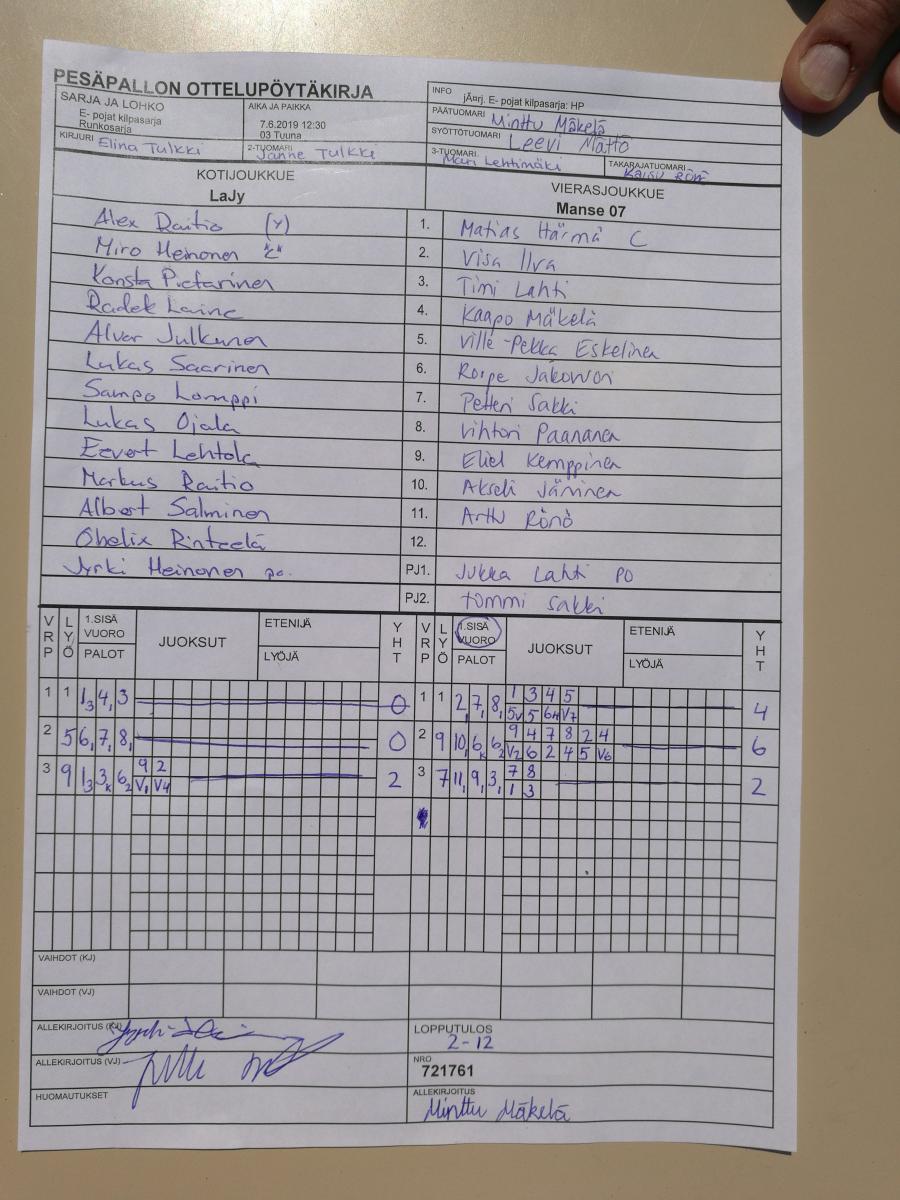 PESÄPALLON OTTELUPÖYTÄKIRJA
SARJA JA LOHKO
E- pojat kilpasarja
Runkosarja
AIKA JA PAIKKA
7.6.2019 12:30
03 Tuuna
KIRJURI Elina Tulkki
2-TUOMARI Janne Tulkki
INFO
jÄ¤rj. E- pojat kilpasarja: HP
PÄÄTUOMARI Minttu Mäkelä
SYÖTTÖTUOMARI Leevi Mättö
3-TUOMARI Mari Lehtimäki
TAKARAJATUOMARI Kaisu Rönö
KOTIJOUKKUE
LaJy
VIERASJOUKKUE
Manse 07
Alex Raitio (Y) 1. Matias Härmä C
Miro Heinonen "C" 2. Visa Ilva
Konsta Pietarinen 3. Timi Lahti
Radek Laine 4. Kaapo Mäkelä
Alvar Julkunen 5. Ville-Pekka Eskelinen
Lukas Saarinen 6. Roope Jakowuori
Sampo Lomppi 7. Petteri Sakki
Lukas Ojala 8. Vihtori Paananen
Eevert Lehtola 9. Eliel Kemppinen
Markus Raitio 10. Akseli Jäminen
Albert Salminen 11. Arttu Rönö
Obelix Rinteelä 12.
Jyrki Heinonen po. PJ1. Jukka Lahti PO
PJ2. Tommi Sakki
VRP LYÖ 1.SISÄ VUORO PALOT JUOKSUT ETENIJÄ LYÖJÄ YHT VRP LYÖ 1.SISÄ VUORO PALOT JUOKSUT ETENIJÄ LYÖJÄ YHT
1 1 1,3 4, 3 0 1 1 2, 7, 8, 1 3 4 5 4
5V 5 6H V7
2 5 6, 7, 8, 0 2 9 10, 6K 62 9 4 7 8 2 4 6
V2 6 2 4 5 V6
3 9 13 3K 62 9 2 2 3 7 11, 9, 3, 7 8 2
V1 V4 1 3
VAIHDOT (KJ)
VAIHDOT (VJ)
ALLEKIRJOITUS (KJ)
LOPPUTULOS
2-12
ALLEKIRJOITUS (VJ)
NRO
721761
HUOMAUTUKSET
ALLEKIRJOITUS
Minttu Mäkelä